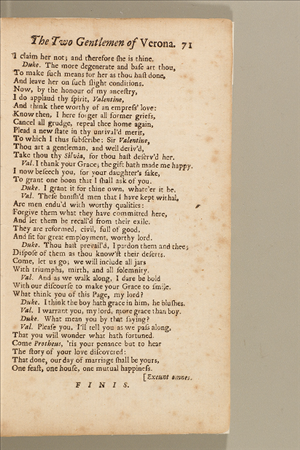 The Two Gentlemen of Verona. 71
I claim her not; and therefore she is thine.
Duke. The more degenerate and base art thou,
To make such means for her as thou hast done,
And leave her on such slight conditions.
Now, by the honour of my ancestry,
I do applaud thy spirit, Valentine,
And think thee worthy of an empress' love:
Know then, I here forget all former griefs,
Cancel all grudge, repeal thee home again,
Plead a new state in thy unrival'd merit,
To which I thus subscribe: Sir Valentine,
Thou art a gentleman, and well deriv'd,
Take thou thy Silvia, for thou hast deserv'd her.
Val. I thank your Grace; the gift hath made me happy.
I now beseech you, for your daughter's sake,
To grant one boon that I shall ask of you.
Duke. I grant it for thine own, whate'er it be.
Val. These banish'd men that I have kept withal,
Are men endu'd with worthy qualities:
Forgive them what they have committed here,
And let them be recall'd from their exile.
They are reformed, civil, full of good,
And fit for great employment, worthy lord.
Duke. Thou hast prevail'd, I pardon them and thee;
Dispose of them as thou know'st their deserts.
Come, let us go; we will include all jars
With triumphs, mirth, and all solemnity.
Val. And as we walk along, I dare be bold
With our discourse to make your Grace to smile.
What think you of this Page, my lord?
Duke. I think the boy hath grace in him, he blushes.
Val. I warrant you, my lord, more grace than boy.
Duke. What mean you by that saying?
Val. Please you, I'll tell you as we pass along,
That you will wonder what hath fortuned.
Come Protheus, 'tis your penance but to hear
The story of your love discovered:
That done, our day of marriage shall be yours,
One feast, one house, one mutual happiness.
[Exeunt omnes.
FINIS.